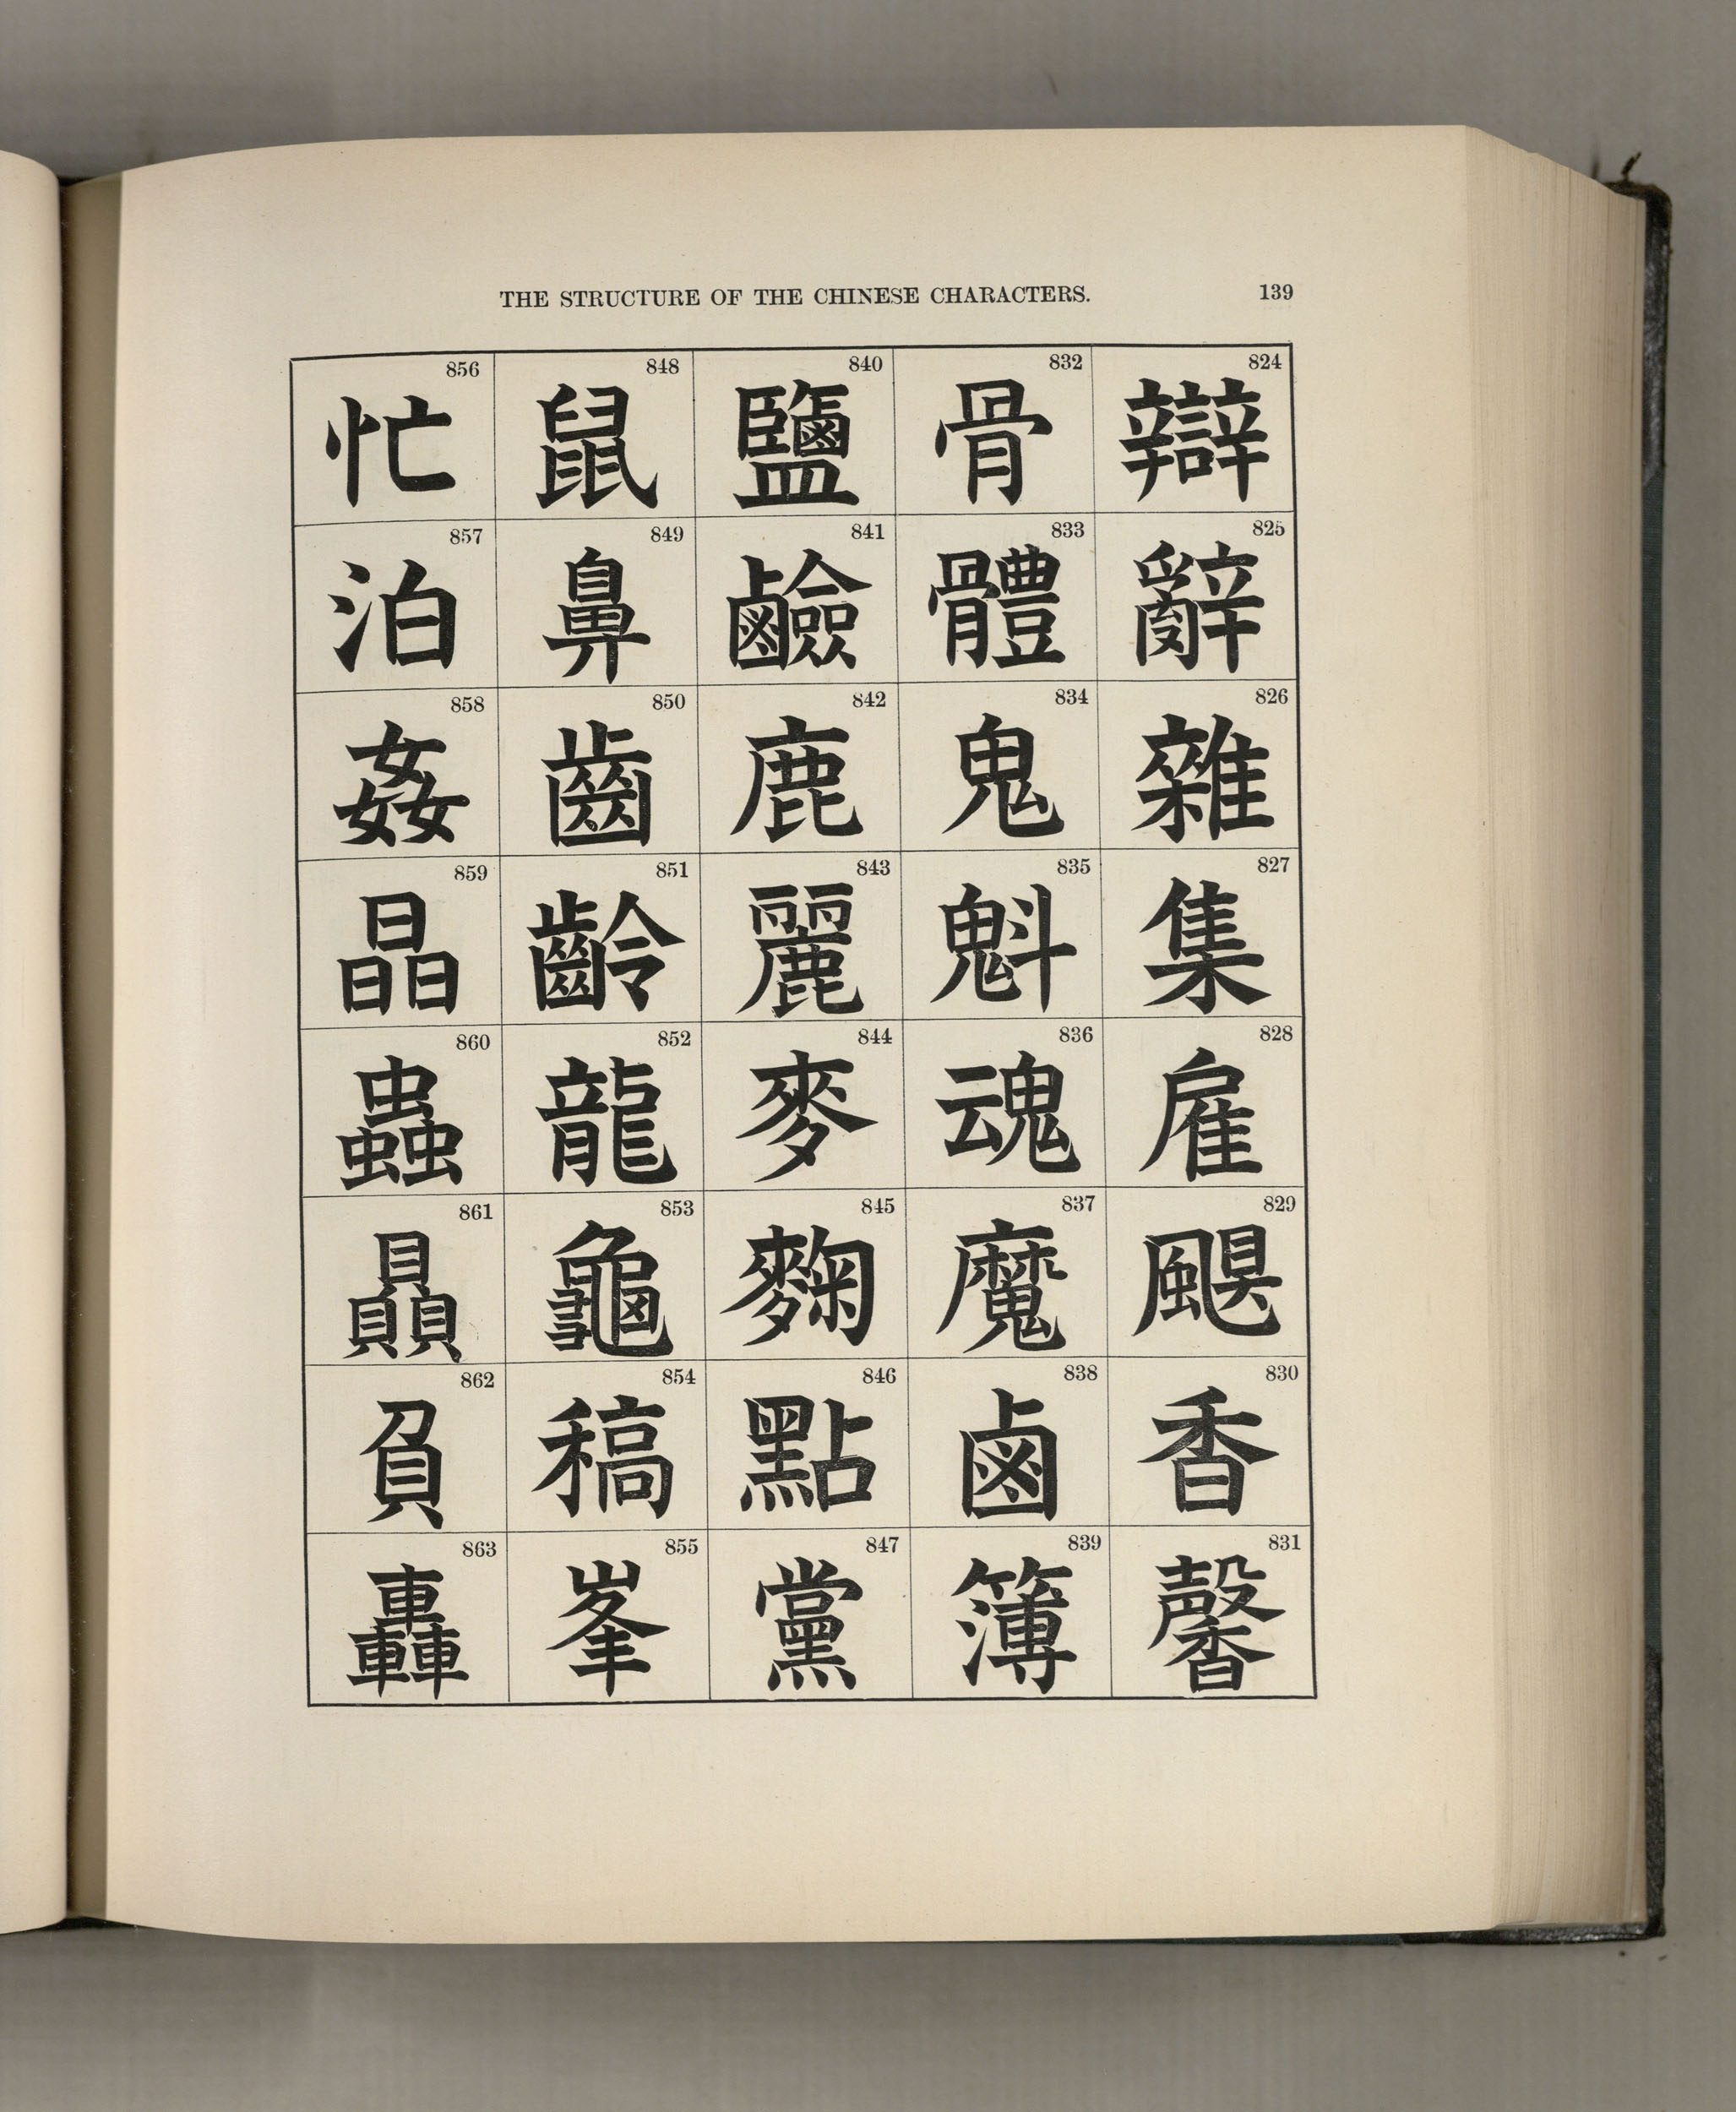 THE STRUCTURE OF THE CHINESE CHARACTERS. 139
824 辯
825 辭
826 雜
827 集
828 雇
829 颶
830 香
831 馨
832 骨
833 體
834 鬼
835 魁
836 魂
837 魔
838 鹵
839 簿
840 鹽
841 鹼
842 鹿
843 麗
844 麥
845 麴
846 點
847 黨
848 鼠
849 鼻
850 齒
851 齡
852 龍
853 龜
854 稿
855 峯
856 忙
857 泊
858 姦
859 晶
860 蟲
861 贔
862 負
863 轟